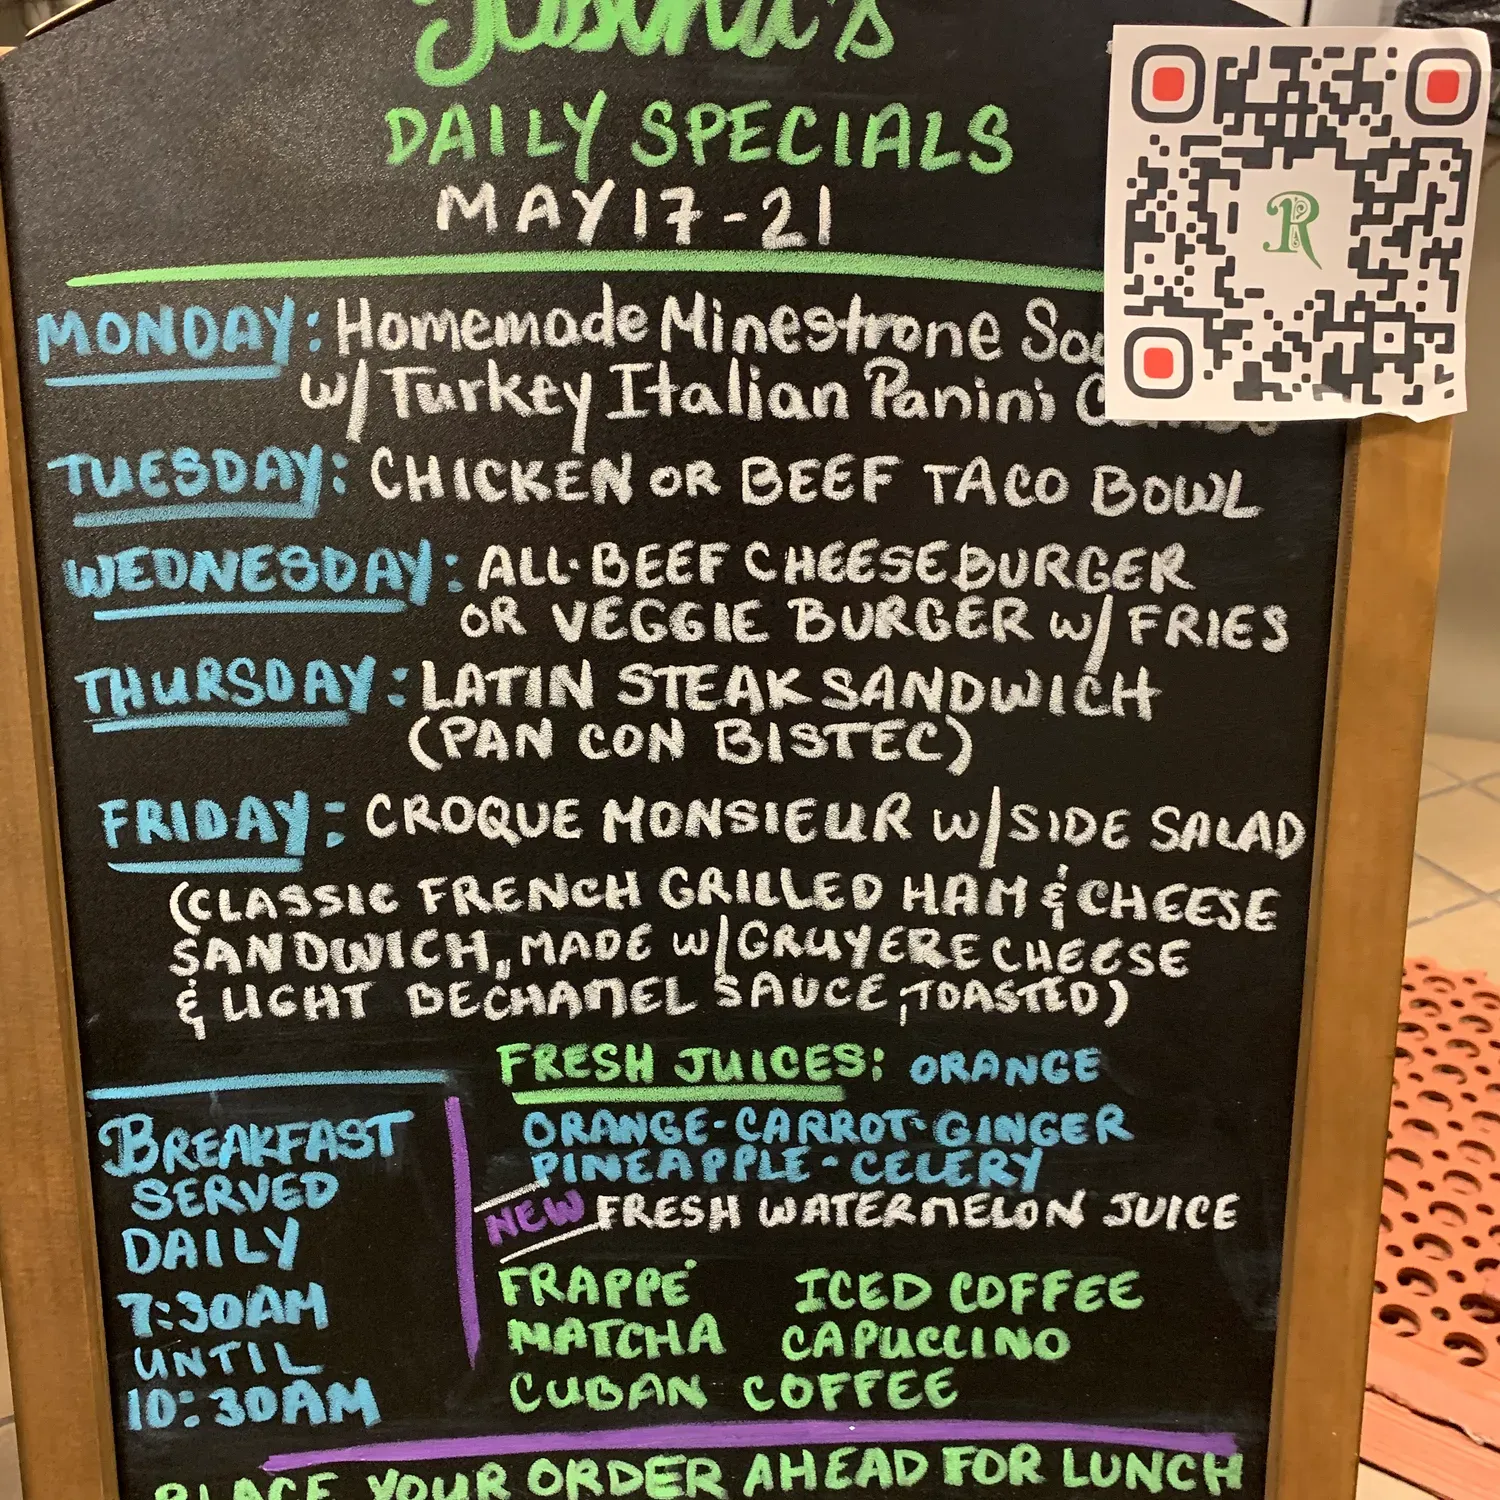 DAILY SPECIALS
MAY 17-21
MONDAY: Homemade Minestrone
w/ Turkey Italian Panini
TUESDAY: CHICKEN OR BEEF TACO BOWL
WEDNESDAY: ALL-BEEF CHEESEBURGER
OR VEGGIE BURGER w/ FRIES
THURSDAY: LATIN STEAK SANDWICH
(PAN CON BISTEC)
FRIDAY: CROQUE MONSIEUR w/ SIDE SALAD
(CLASSIC FRENCH GRILLED HAM & CHEESE
SANDWICH, MADE w/ GRUYERE CHEESE
& LIGHT BECHAMEL SAUCE, TOASTED)
FRESH JUICES: ORANGE
ORANGE-CARROT-GINGER
PINEAPPLE-CELERY
NEW FRESH WATERMELON JUICE
FRAPPÉ ICED COFFEE
MATCHA CAPUCCINO
CUBAN COFFEE
BREAKFAST
SERVED
DAILY
7:30AM
UNTIL
10:30AM
PLACE YOUR ORDER AHEAD FOR LUNCH
R